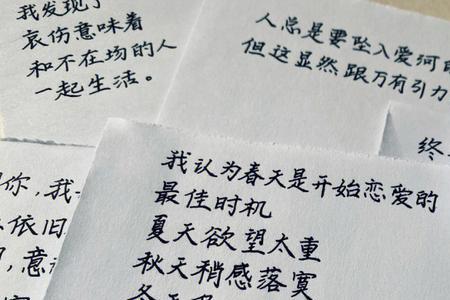 我发现了
哀伤意味着
和不在场的人
一起生活。
人总是要坠入爱河的
但这显然跟万有引力
终
你,我
依旧
,意
我认为春天是开始恋爱的
最佳时机
夏天欲望太重
秋天稍感落寞
冬天